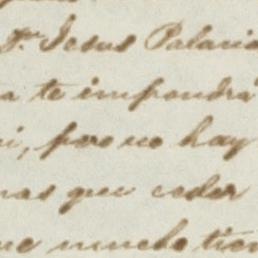 Fr. Jesus Palacio
a te impondrá
i, pero no hay
mas que ceder
ne mucho tien